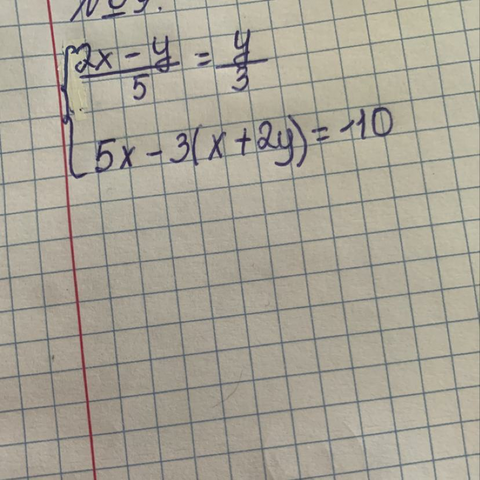 № 9.
2x - y / 5 = y / 3
5x - 3(x + 2y) = -10